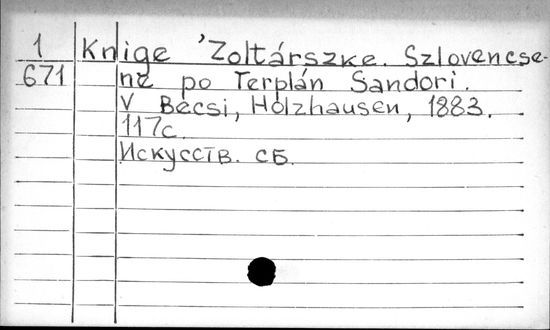 1 Knige 'Zoltárszke. Szlovencse-
671 ne po Terplán Sandori.
V Bécsi, Holzhausen, 1883.
117c.
Искусств. сб.